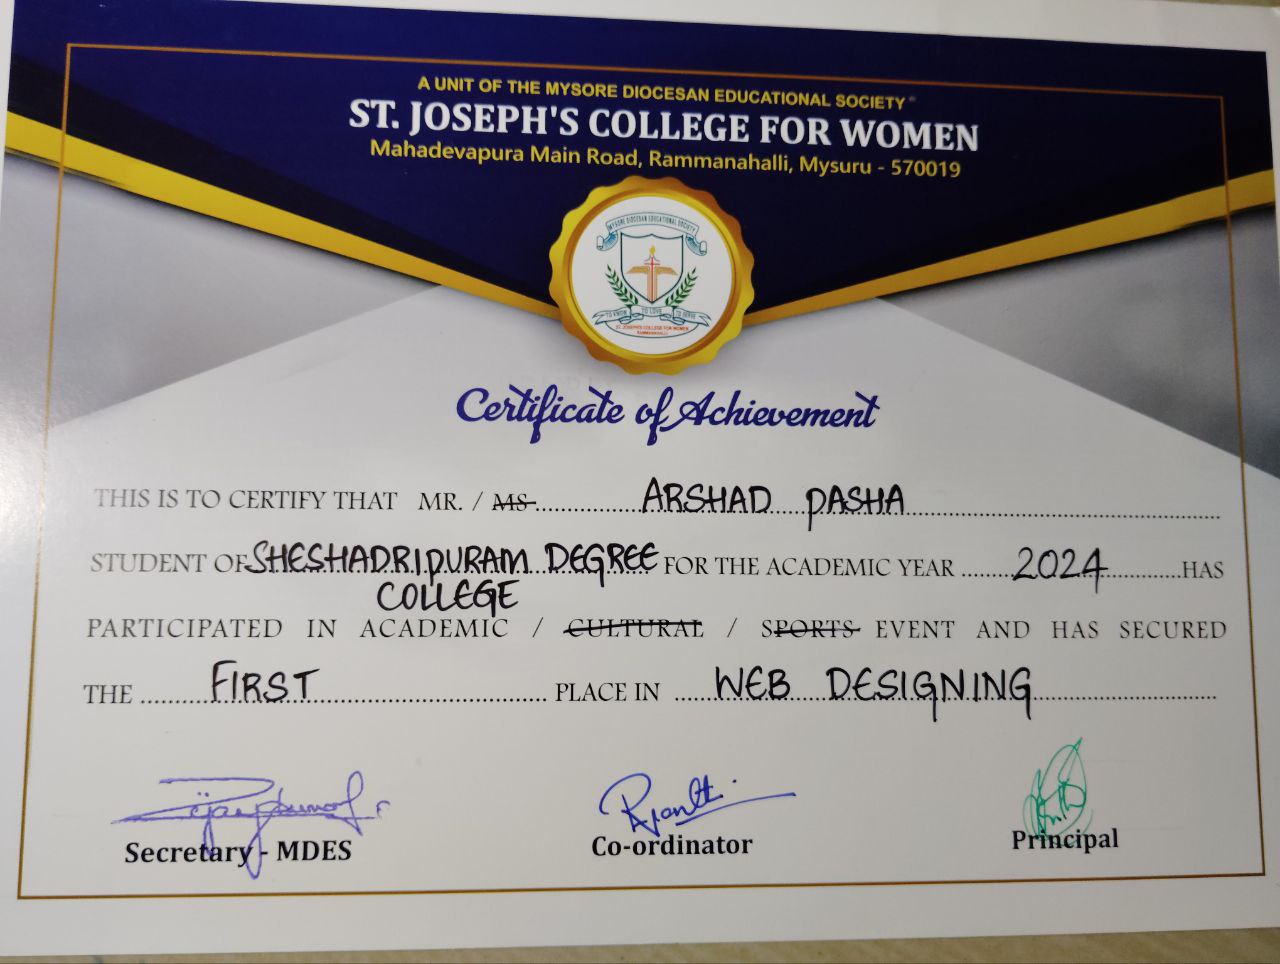 A UNIT OF THE MYSORE DIOCESAN EDUCATIONAL SOCIETY
ST. JOSEPH'S COLLEGE FOR WOMEN
Mahadevapura Main Road, Rammanahalli, Mysuru - 570019
MYSORE DIOCESAN EDUCATIONAL SOCIETY
TO KNOW TO LOVE TO SERVE
ST. JOSEPH'S COLLEGE FOR WOMEN
RAMMANAHALLI
Certificate of Achievement
THIS IS TO CERTIFY THAT MR. / MS. ARSHAD PASHA
STUDENT OF SHESHADRIPURAM DEGREE FOR THE ACADEMIC YEAR 2024 HAS
COLLEGE
PARTICIPATED IN ACADEMIC / CULTURAL / SPORTS EVENT AND HAS SECURED
THE FIRST PLACE IN WEB DESIGNING
Secretary - MDES
Co-ordinator
Principal